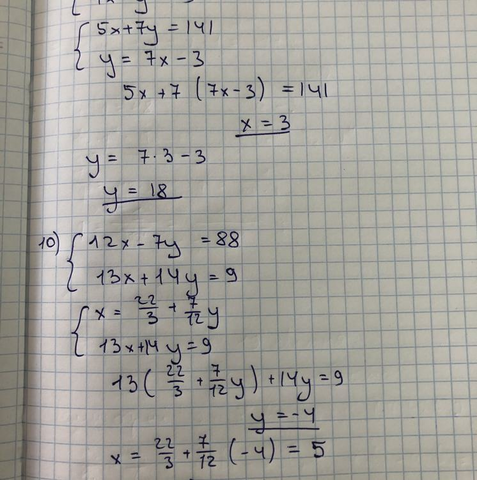 5x+7y = 141
y = 7x - 3
5x + 7 (7x-3) = 141
x = 3
y = 7·3 - 3
y = 18
10) 12x - 7y = 88
13x + 14y = 9
x = 22/3 + 7/12 y
13x+14y = 9
13 ( 22/3 + 7/12 y ) + 14y = 9
y = -4
x = 22/3 + 7/12 (-4) = 5